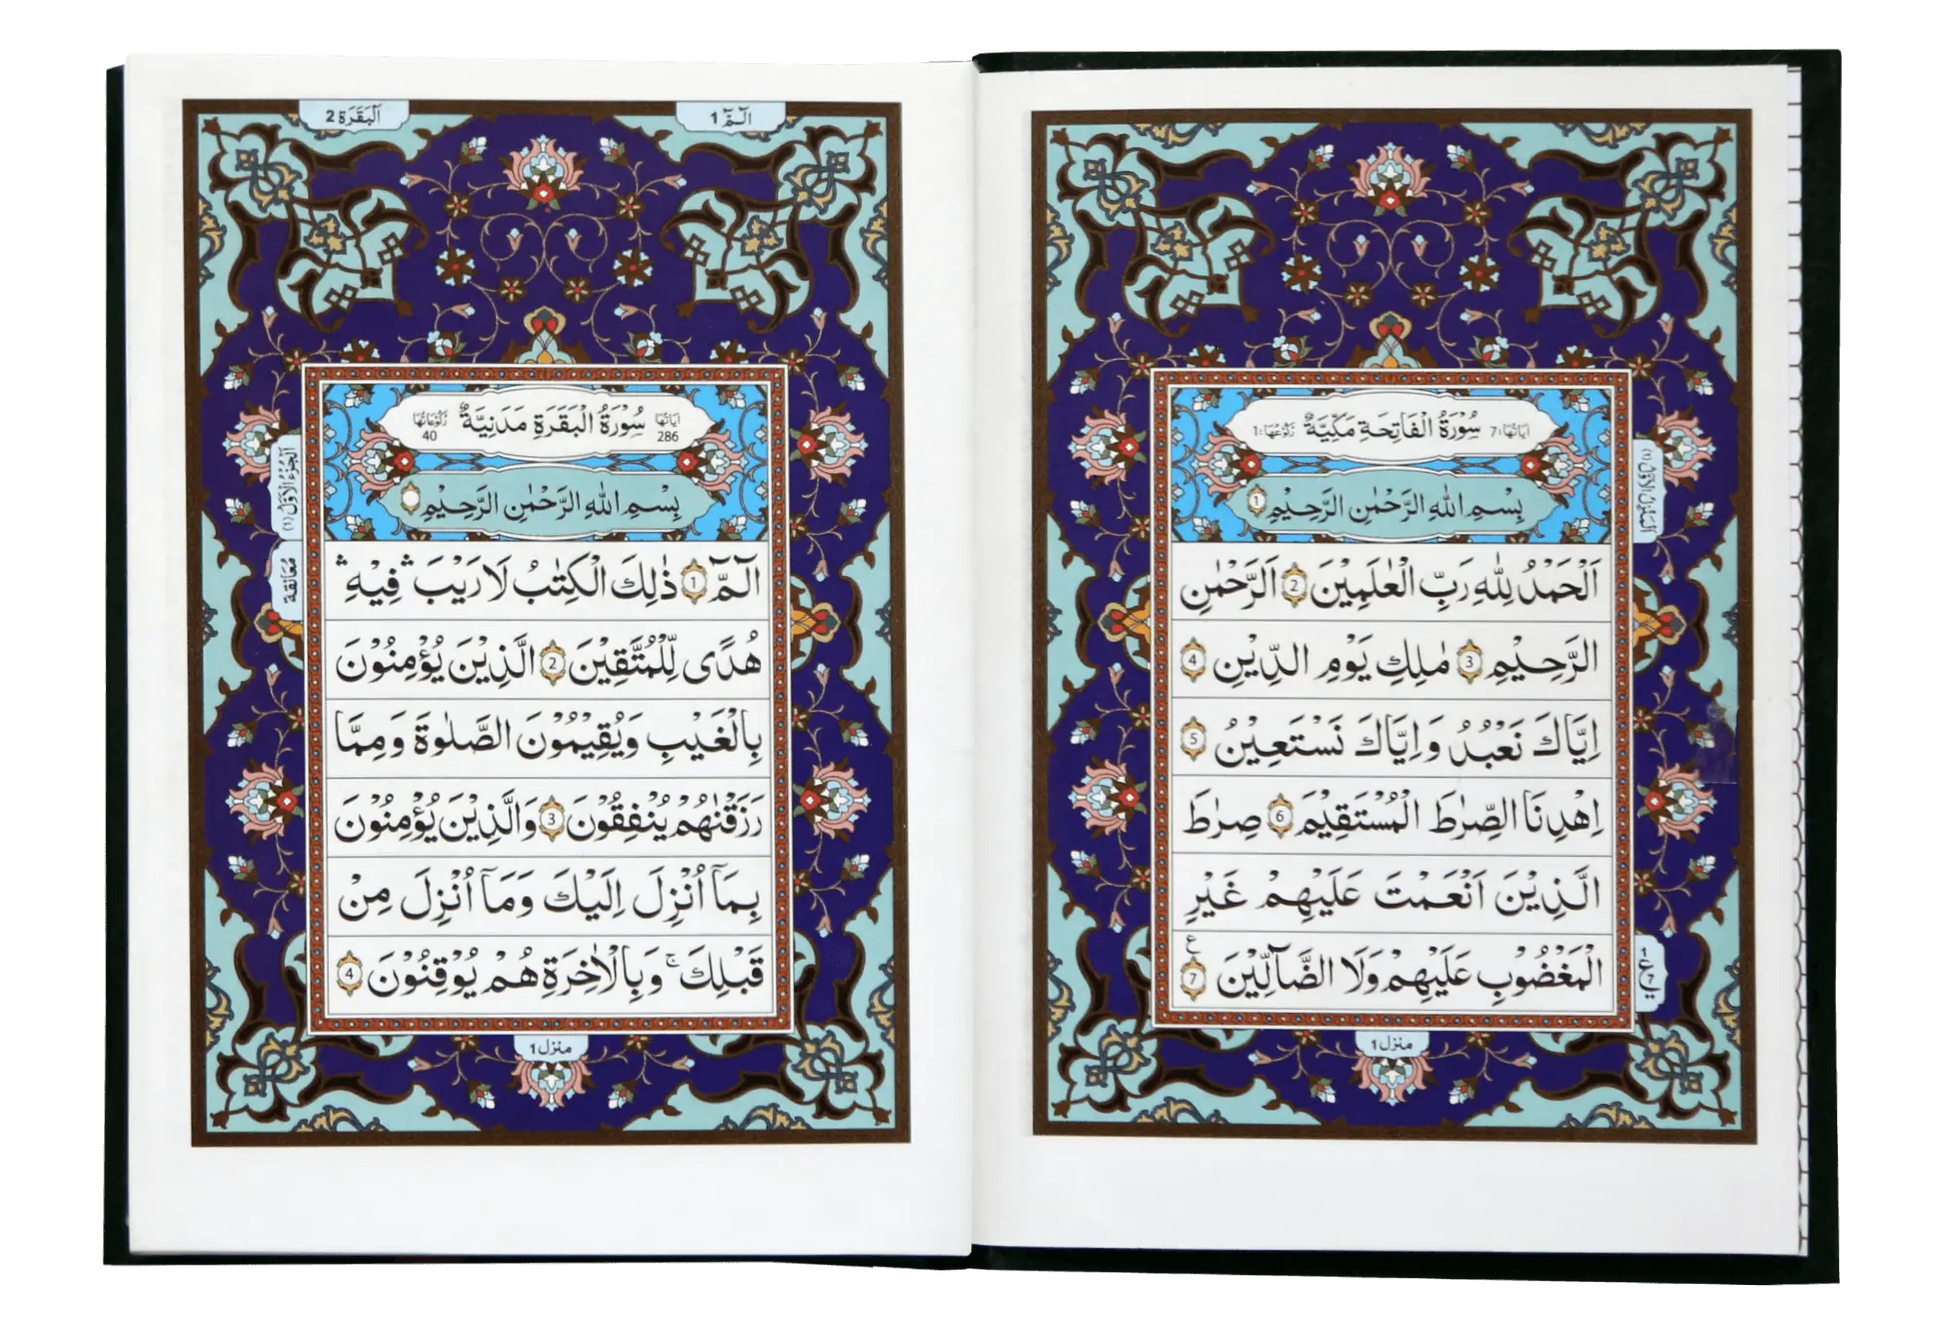 سُوْرَةُ الْفَاتِحَةِ مَكِّيَّةٌ
اٰیَاتُهَا:7
رُكُوْعُهَا:1
بِسْمِ اللّٰهِ الرَّحْمٰنِ الرَّحِيْمِ 1
اَلْحَمْدُ لِلّٰهِ رَبِّ الْعٰلَمِيْنَ 2 الرَّحْمٰنِ
الرَّحِيْمِ 3 مٰلِكِ يَوْمِ الدِّيْنِ 4
اِيَّاكَ نَعْبُدُ وَاِيَّاكَ نَسْتَعِيْنُ 5
اِهْدِنَا الصِّرٰطَ الْمُسْتَقِيْمَ 6 صِرٰطَ
الَّذِيْنَ اَنْعَمْتَ عَلَيْهِمْ غَيْرِ
الْمَغْضُوْبِ عَلَيْهِمْ وَلَا الضَّآلِّيْنَ 7 ع
1 ع 7
منزل 1
الٓمّٓ 1
اَلْبَقَرَة 2
سُوْرَةُ الْبَقَرَةِ مَدَنِيَّةٌ
اٰیَاتُهَا 286
رُكُوْعَاتُهَا 40
بِسْمِ اللّٰهِ الرَّحْمٰنِ الرَّحِيْمِ
اَلْجُزْءُ الْاَوَّلُ (1)
مُعَانَقَة
الٓمّٓ 1 ذٰلِكَ الْكِتٰبُ لَا رَيْبَ ۛ فِيْهِ ۛ
هُدًى لِّلْمُتَّقِيْنَ 2 الَّذِيْنَ يُؤْمِنُوْنَ
بِالْغَيْبِ وَيُقِيْمُوْنَ الصَّلٰوةَ وَمِمَّا
رَزَقْنٰهُمْ يُنْفِقُوْنَ 3 وَالَّذِيْنَ يُؤْمِنُوْنَ
بِمَآ اُنْزِلَ اِلَيْكَ وَمَآ اُنْزِلَ مِنْ
قَبْلِكَ ۚ وَبِالْاٰخِرَةِ هُمْ يُوْقِنُوْنَ 4
منزل 1